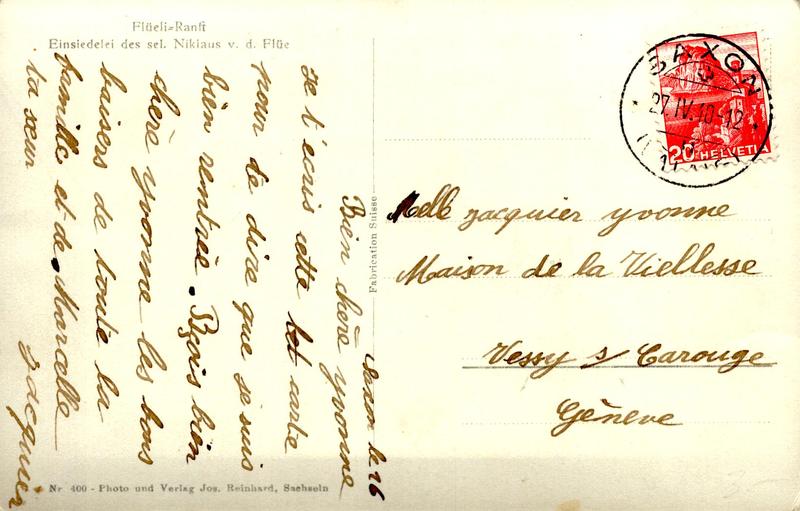 Flüeli-Ranft
Einsiedelei des sel. Niklaus v. d. Flüe
Saxon le 26
Bien chère yvonne
Je t'ecris cette let carte
pour te dire que je suis
bien rentrée. Reçois bien
chère yvonne les bons
baisers de toute la
famille et de Marcelle
ta sœur
Jacquier
Fabrication Suisse
SAXON
27.IV. 10-12
20 HELVETIA
Melle Jacquier yvonne
Maison de la Viellesse
Vessy s/ Carouge
Génève
Nr 400 - Photo und Verlag Jos. Reinhard, Sachseln